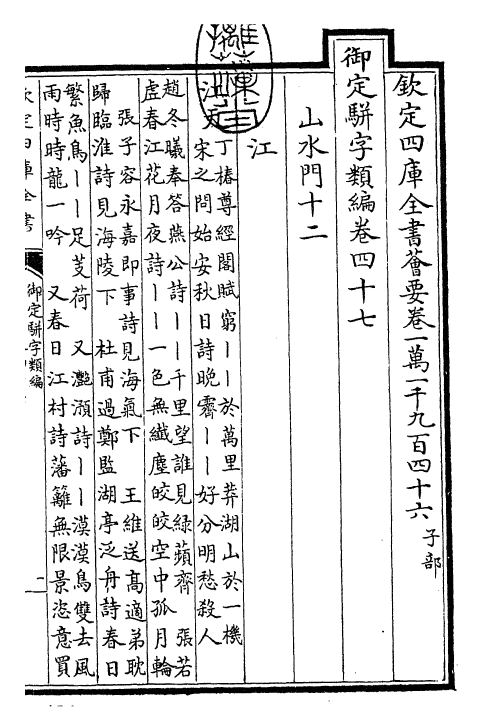 欽定四庫全書薈要卷一萬一千九百四十六 子部
御定駢字類編卷四十七
山水門十二
江
江天
丁椿尊經閣賦窮丨丨於萬里莽湖山於一機
宋之問始安秋日詩晚霽丨丨好分明愁殺人
趙冬曦奉答燕公詩丨丨千里望誰見綠蘋齊 張若
虛春江花月夜詩丨丨一色無纖塵皎皎空中孤月輪
張子容永嘉即事詩見海氣下 王維送高適弟耽
歸臨淮詩見海陵下 杜甫過鄭監湖亭泛舟詩春日
繁魚鳥丨丨足芰荷 又灩澦詩丨丨漠漠鳥雙去風
雨時時龍一吟 又春日江村詩藩籬無限景恣意買
欽定四庫全書
御定駢字類編